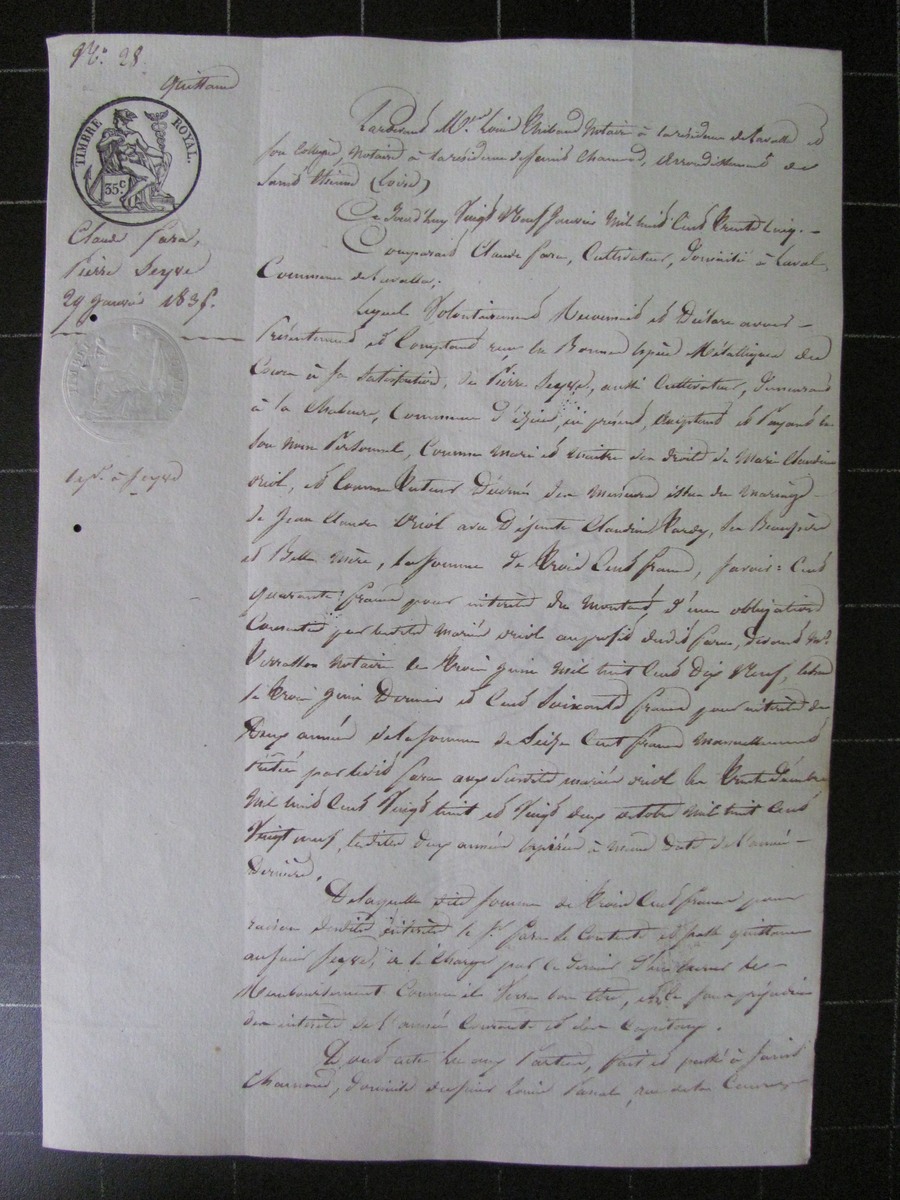 N° 28.
Quittance
TIMBRE ROYAL.
35 c
Claude Fara,
Pierre Seyve
29 Janvier 1835.
Pardevant M.tre Louis Notaire à la résidence de Lavalla et
son Collègue, Notaire à la résidence de Saint Chamond, Arrondissement de
Saint Etienne (Loire)
Ce Jourd'huy Vingt Neuf Janvier Mil huit Cent Trente Cinq. –
Comparait Claude Fara, Cultivateur, domicilié à Laval,
Commune de Lavalla;
Lequel Volontairement Reconnait et Déclare avoir –
Présentement et Comptant reçu en Bonnes Espèces Métalliques du
Cours à sa Satisfaction, de Pierre Seyve, aussi Cultivateur, demeurant
à la Commune d'Izieu, ici présent, acceptant et Payant en
son nom Personnel, Comme Mari et maitre des droits de Marie Claudine
oriol, et Comme Tuteur Décerné des mineurs issus du Mariage –
de Jean Claude oriol avec Défunte Claudine Tardy, ses Beaupère
et Belle Mère, la somme de Trois Cents francs, savoir: Cent
quarante francs pour intérêts du montant d'une obligation
Consentie par lesdits Mariés oriol au profit dudit Fara, devant M.e
Notaire le Trois Juin Mil huit Cent Dix Neuf,
le Trois Juin Dernier et Cent Soixante francs pour intérêts de
Deux années de la somme de Seize Cents francs Manuellement
prêtée par ledit Fara aux susdits mariés oriol les Trente
Mil huit Cent Vingt huit et Vingt deux octobre Mil huit Cent
Vingt neuf, lesdites deux années expirées à même Date de l'année –
Dernière.
De laquelle dite somme de Trois Cents francs pour
raison desdits intérêts le S.r Fara se Contente et passe quittance
audit Seyve, à la Charge par ce dernier d'en faire le –
Remboursement Comme il Verra bon être, et le sans préjudice
des intérêts de l'année Courante et des Capitaux.
Dont acte lu aux Parties, fait et passé à Saint
Chamond, domicile du sieur Louis rue de la